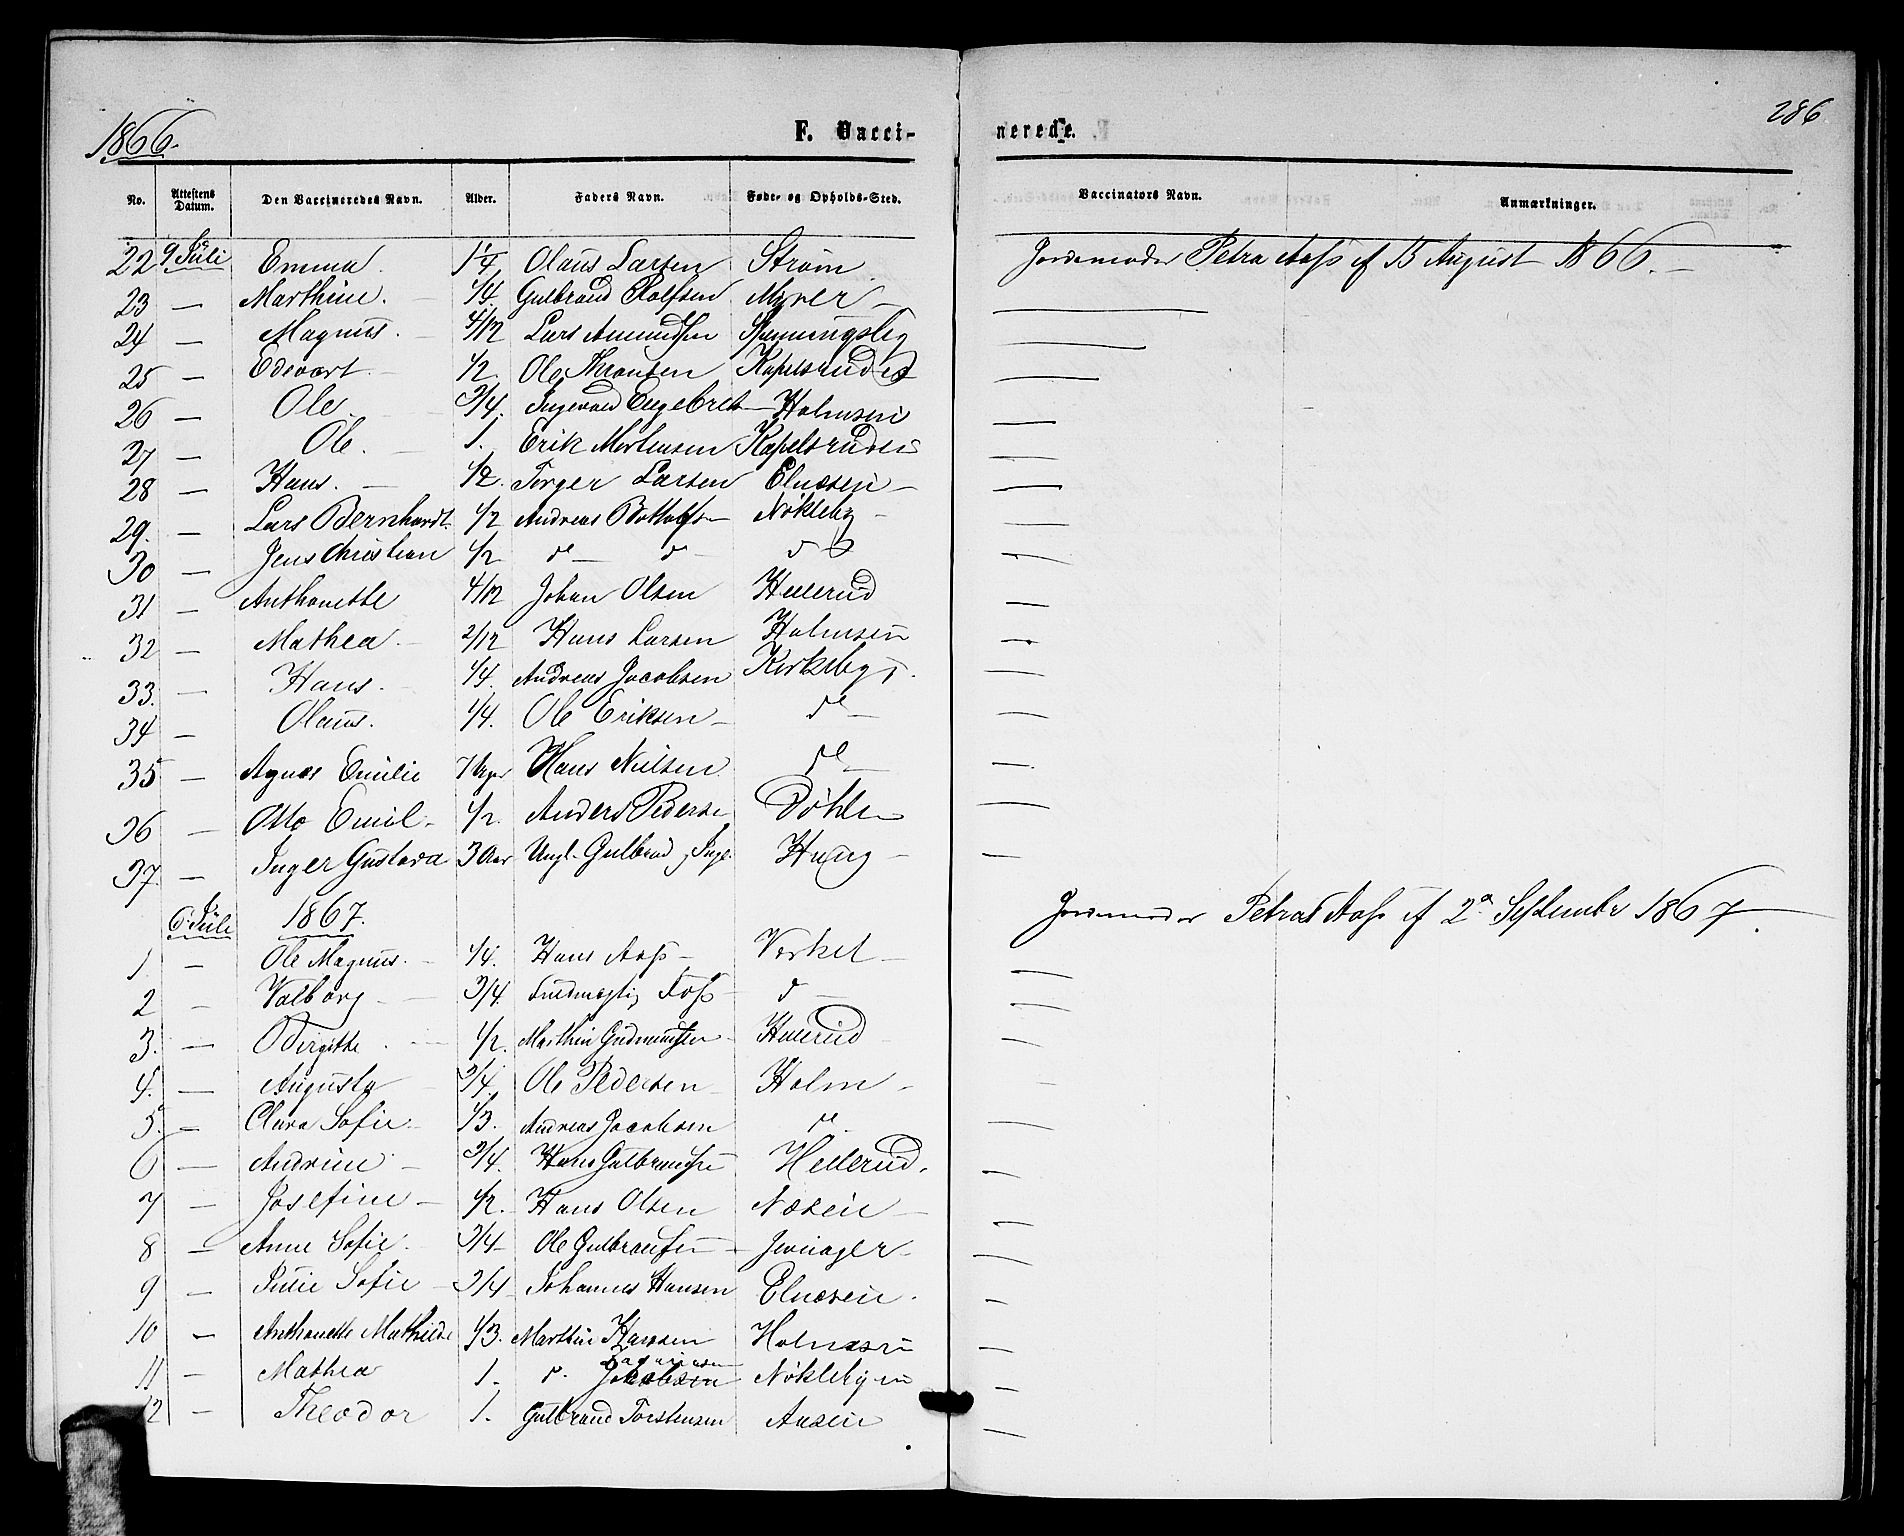 1866.
F. Vacci-
nerede.
286
No. Attestens Datum. Den Vaccineredes Navn. Alder. Faders Navn. Føde- og Opholds-Sted. Vaccinators Navn. Anmærkninger.
22 9 Juli Emma. 1/4 Olaus Larsen Strøm Jordemoder Petra Aass af 13 August 1866. —
23 — Marthine. — 1/4. Gulbrand Rolfsen Myrer — —
24 — Magnus. — 4/12 Lars Amundsen —
25 — Edevart. — 1/2. Ole —
26 — Ole. — 3/4. Ingevald Engebret— Holmsen —
27 — Ole. — 1. Erik Mortensen Kapelsruden —
28 — Hans. — 1/2. Torger Larsen Elnesen — —
29. — Lars Bernhardt. 1/2 Andreas Nøkleby — —
30 — Jens Christian 1/2 do — d — d —
31 — Anthonette 4/12 Johan Olsen Hellerud —
32 — Mathea. — 2/12 Hans Larsen Holmsen —
33. — Hans. — 1/4. Andreas Jacobsen Kirkeby —
34 — Olaus. 1/4. Ole Eriksen — do — —
35 — Agnes Emilie 7 Uger Hans Nielsen do — —
36 — Otto Emil. 1/2. Anders Pederse Døhlen —
37. — Inger Gustava 3 Aar Ungk. Gulbrand Haug — —
6 Juli 1867. Jordemoder Petra Aass af 2d September 1867.
1 — Ole Magnus. — 1/4. Hans Aass — Verket — —
2 — Valborg — 3/4. Fuldmægtig Foss — d — —
3. — Birgitte. — 1/2. Marthin Gudmundsen Hellerud —
4. — Augusta — 3/4. Ole Pedersen — Holm — —
5. — Clara Sofie. 1/3. Andreas Jacobsen do —
6 — Andrine — 3/4. Hans Gulbransen Hellerud. —
7 — Josefine — 1/2. Hans Olsen Næsen — —
8 — Anne Sofie. 3/4 — Ole Gulbransen — —
9 — Julie Sofie — 3/4 Johannes Hansen Elnesen. —
10 — Anthonette Mathilde 1/3. Marthin Hansen Holmsen —
11 — Mathea 1. d. Jakobsen Nøklebyen —
12 — Theodor 1. Gulbrand Torstensen Aasen —